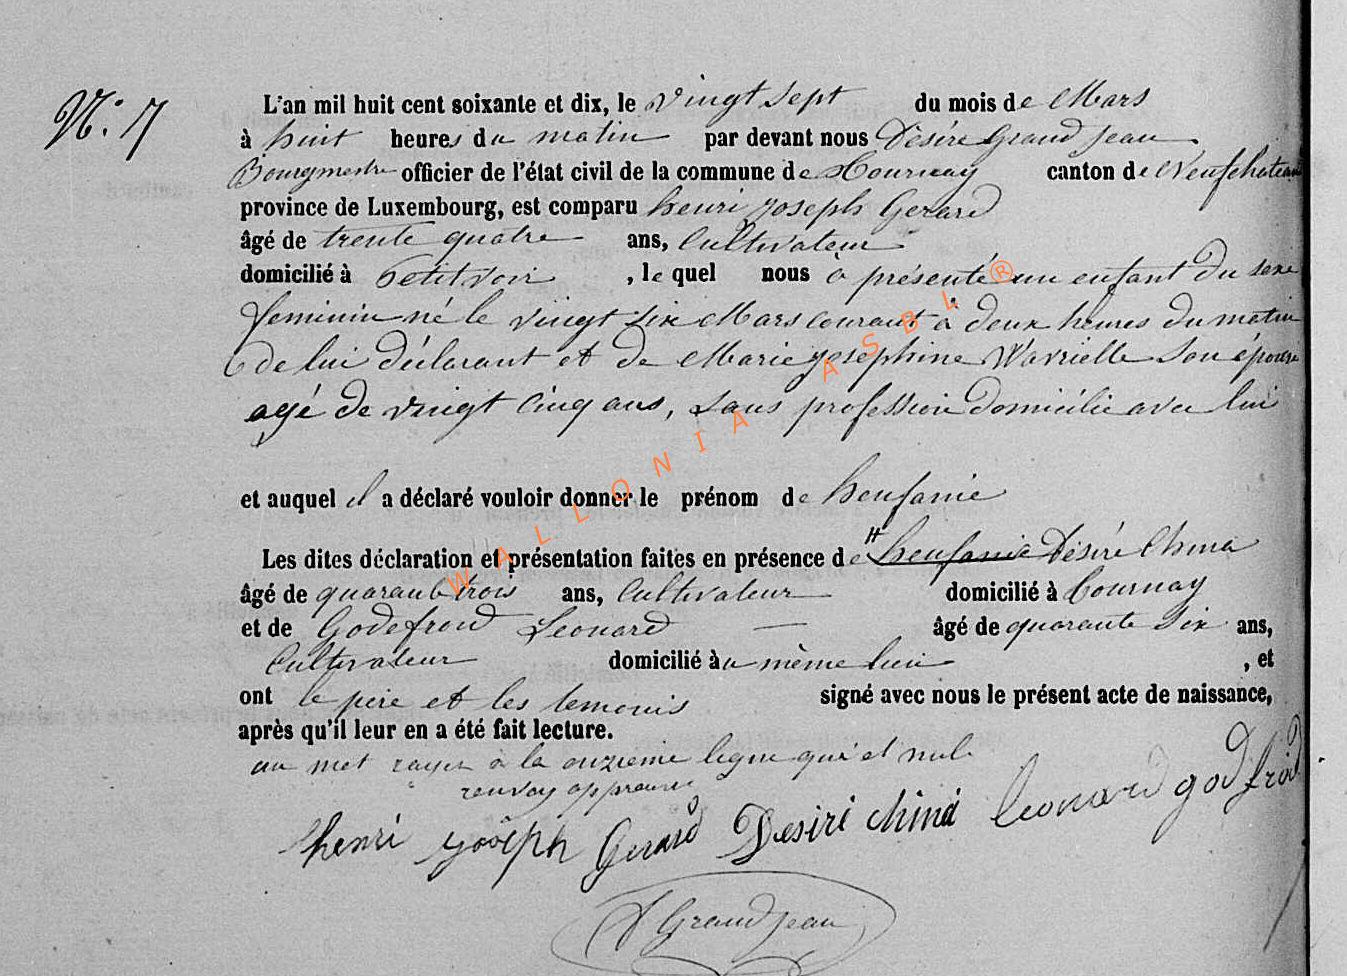 N.° 7
L'an mil huit cent soixante et dix, le vingt sept du mois de Mars
à huit heures du matin par devant nous Désiré Grand jean
Bourgmestre officier de l'état civil de la commune de Tournay canton de Neufchateau
province de Luxembourg, est comparu henri joseph Gerard
âgé de trente quatre ans, Cultivateur
domicilié à Petitvoir, le quel nous à présenté un enfant du sexe
feminin né le vingt six Mars courant à deux heures du matin
de lui déclarant et de Marie josephine Warrielle son épouse
agé de vingt cinq ans, sans profession domicilié avec lui
et auquel il a déclaré vouloir donner le prénom de henfanie
Les dites déclaration et présentation faites en présence de # henfanie Désiré China
âgé de quarante trois ans, Cultivateur domicilié à Tournay
et de Godefroid Leonard — âgé de quarante six ans,
Cultivateur domicilié au même lieu, et
ont le père et les temouis signé avec nous le présent acte de naissance,
après qu'il leur en a été fait lecture.
un mot rayer à la onzieme ligne qui et nul
renvoy approuvé
henri joseph Gerard Desiré chiná leonard godfroid
D Grand jean
WALLONIA ASBL ®